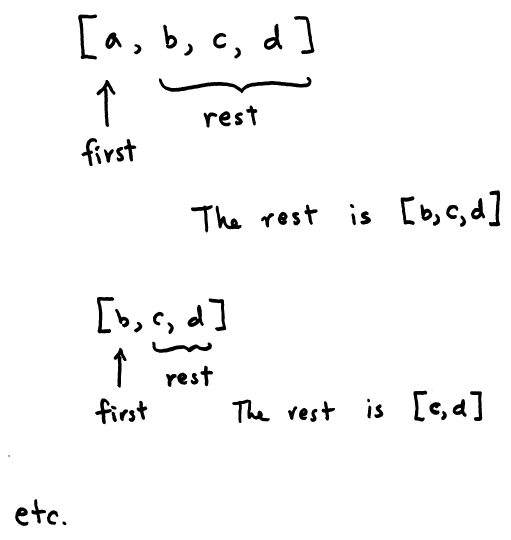 [a, b, c, d]
rest
first
The rest is [b,c,d]
[b, c, d]
rest
first The rest is [c,d]
etc.